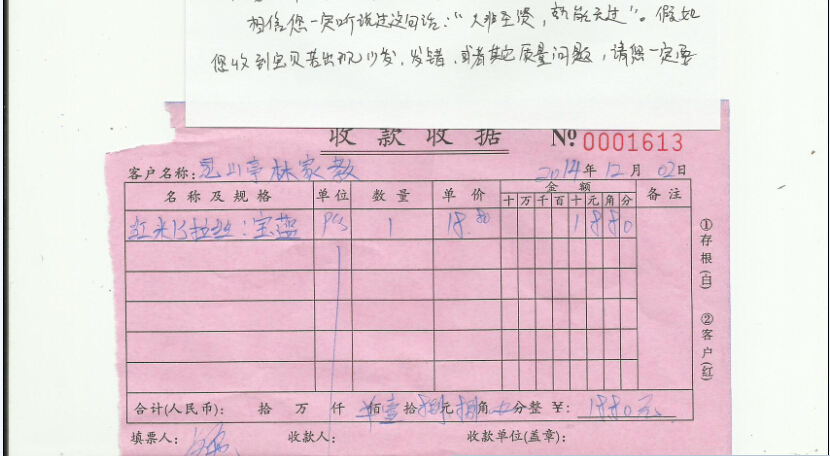 相信您一定听说过这句话："人非圣贤，孰能无过"。假如
您收到宝贝若出现少发、发错、或者其它质量问题，请您一定要
收款收据 Nº 0001613
客户名称：昆山亭林家教 2014年12月02日
名称及规格 单位 数量 单价 金额 备注
十 万 千 百 十 元 角 分
红米1S拉丝：宝蓝 PCS 1 18.80 1 8 8 0
①存根(白) ②客户(红)
合计(人民币)： 拾 万 仟 佰 壹拾捌元捌角 分整 ￥：18.80元
填票人： 收款人： 收款单位(盖章)：